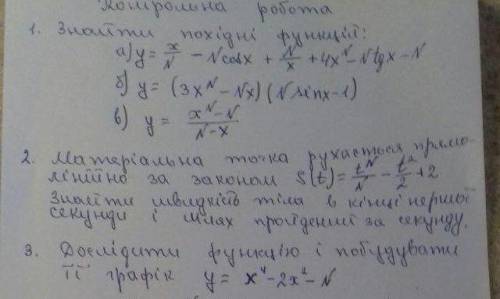 Контрольна робота
1. Знайти похідні функцій:
а) y = x/N - N cosx + N/x + 4x^N - N tgx - N
б) y = (3x^N - Nx)(N sinx - 1)
в) y = (x^N - N)/(N - x)
2. Матеріальна точка рухається прямо-
лінійно за законом S(t) = t^N/N - t²/2 + 2
Знайти швидкість тіла в кінці першої
секунди і шлях пройдений за секунду.
3. Дослідити функцію і побудувати
її графік y = x⁴ - 2x² - N